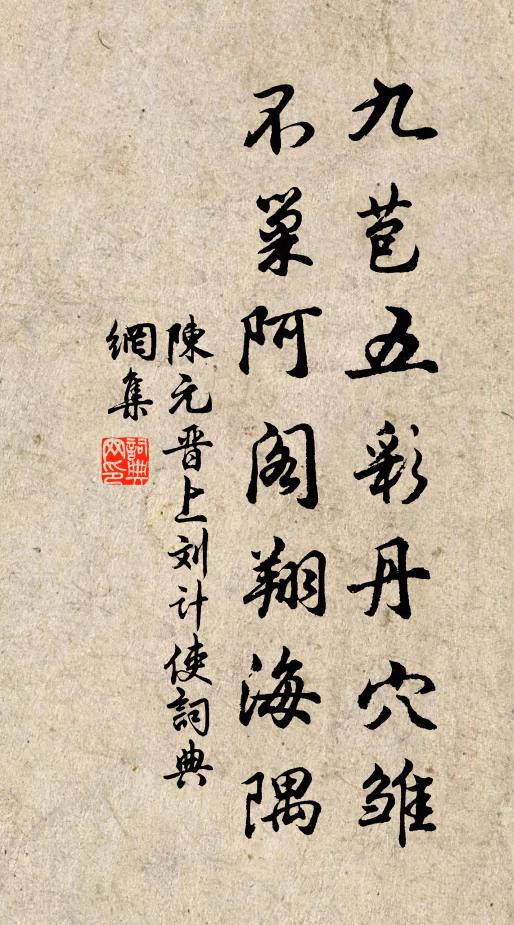 九苞五彩丹穴雏
不巢阿阁翔海隅
陳元晋上刘计使詞典
網集
詞典
网印